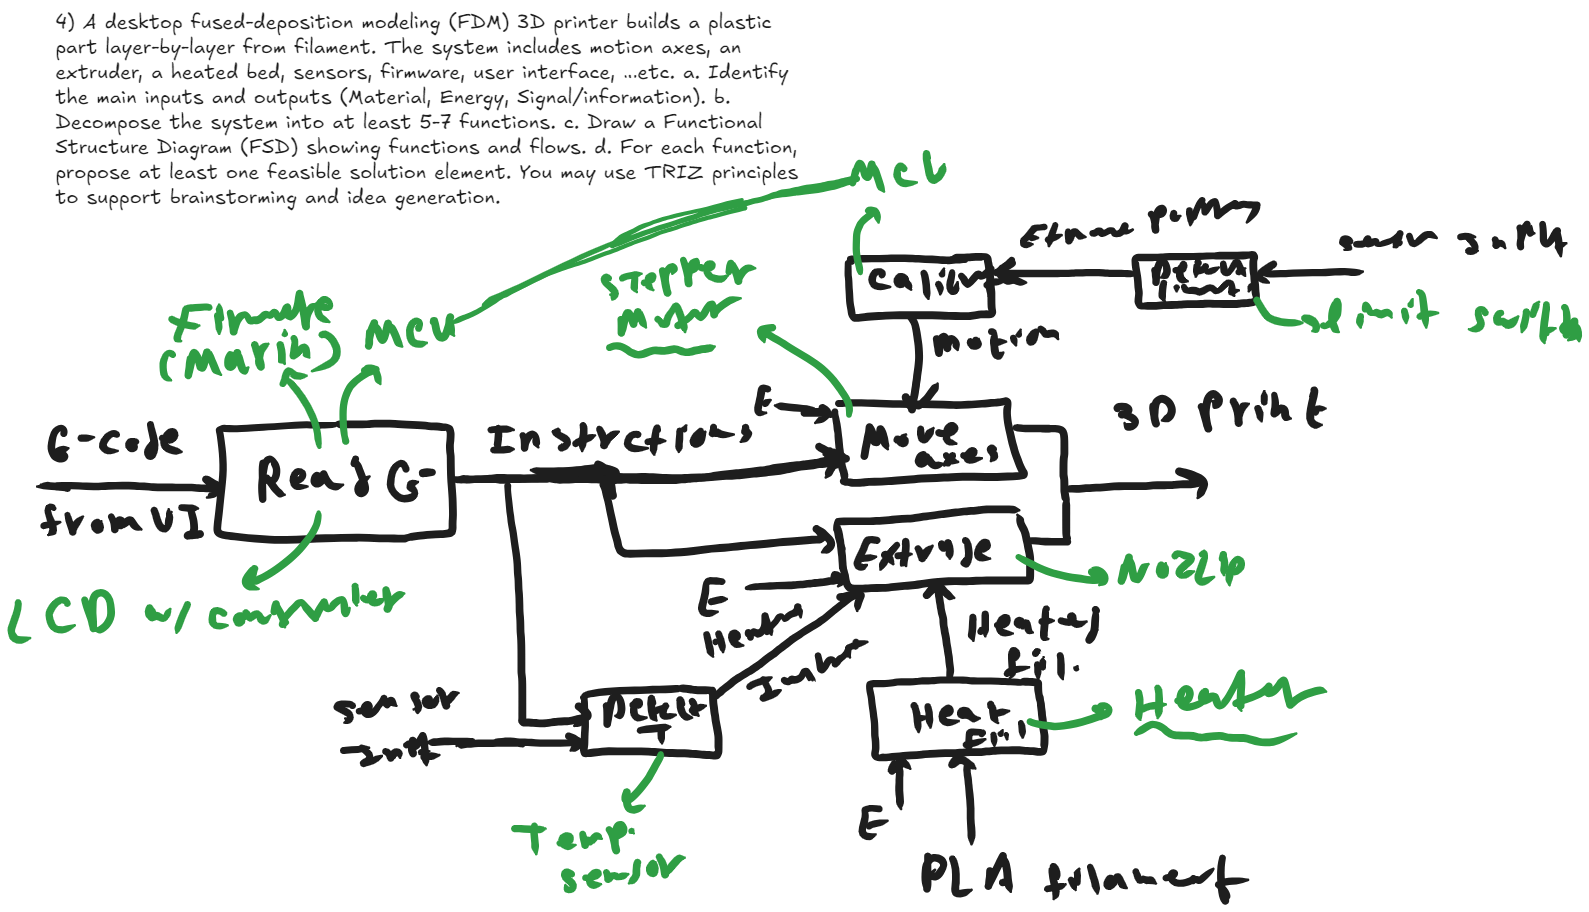 4) A desktop fused-deposition modeling (FDM) 3D printer builds a plastic
part layer-by-layer from filament. The system includes motion axes, an
extruder, a heated bed, sensors, firmware, user interface, ...etc. a. Identify
the main inputs and outputs (Material, Energy, Signal/information). b.
Decompose the system into at least 5-7 functions. c. Draw a Functional
Structure Diagram (FSD) showing functions and flows. d. For each function,
propose at least one feasible solution element. You may use TRIZ principles
to support brainstorming and idea generation.
MCU
sensor
Calibr
stepper
Motor
limit switch
(Marlin)
MCU
motion
E
3D print
G-code
Instructions
Move
axes
Read G-
from UI
Extrude
Nozzle
E
LCD w/
Heated
fil.
sensor
Detect
T
Heat
Fil
Heater
E
Temp.
sensor
PLA filament